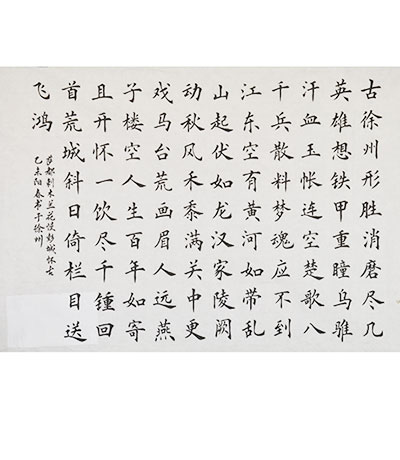 古徐州形胜消磨尽几
英雄想铁甲重瞳乌骓
汗血玉帐连空楚歌八
千兵散料梦魂应不到
江东空有黄河如带乱
山起伏如龙汉家陵阙
动秋风禾黍满关中更
戏马台荒画眉人远燕
子楼空人生百年如寄
且开怀一饮尽千锺回
首荒城斜日倚栏目送
飞鸿
萨都剌木兰花慢彭城怀古
乙未阳春书于徐州